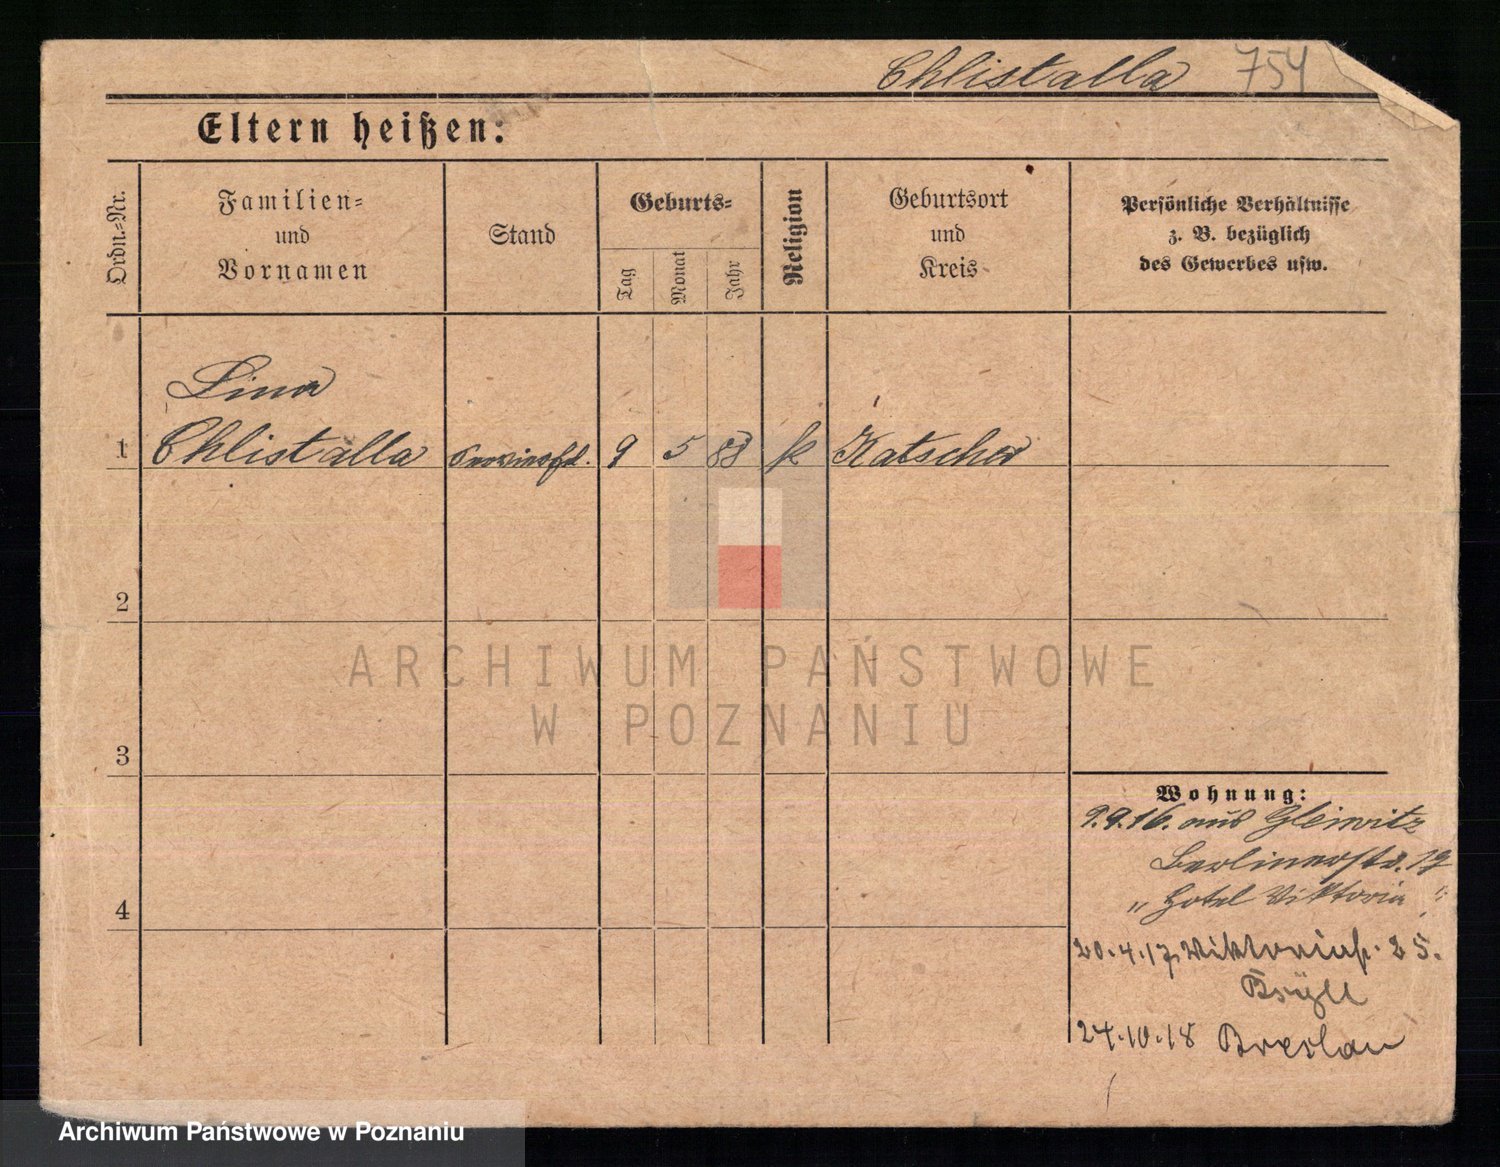 Chlistalla 754
Eltern heißen:
Ordn.-Nr.
Familien-
und
Vornamen
Stand
Geburts-
Tag
Monat
Jahr
Religion
Geburtsort
und
Kreis
Persönliche Verhältnisse
z. B. bezüglich
des Gewerbes usw.
Lina
1 Chlistalla 9 5 88 k Katscher
2
3
4
Wohnung:
9.9.16. aus Gleiwitz
Berlinerstr. 19
"Hotel Viktoria"
20.4.17 Viktoriastr. 25.
24.10.18 Breslau
ARCHIWUM PAŃSTWOWE
W POZNANIU
Archiwum Państwowe w Poznaniu